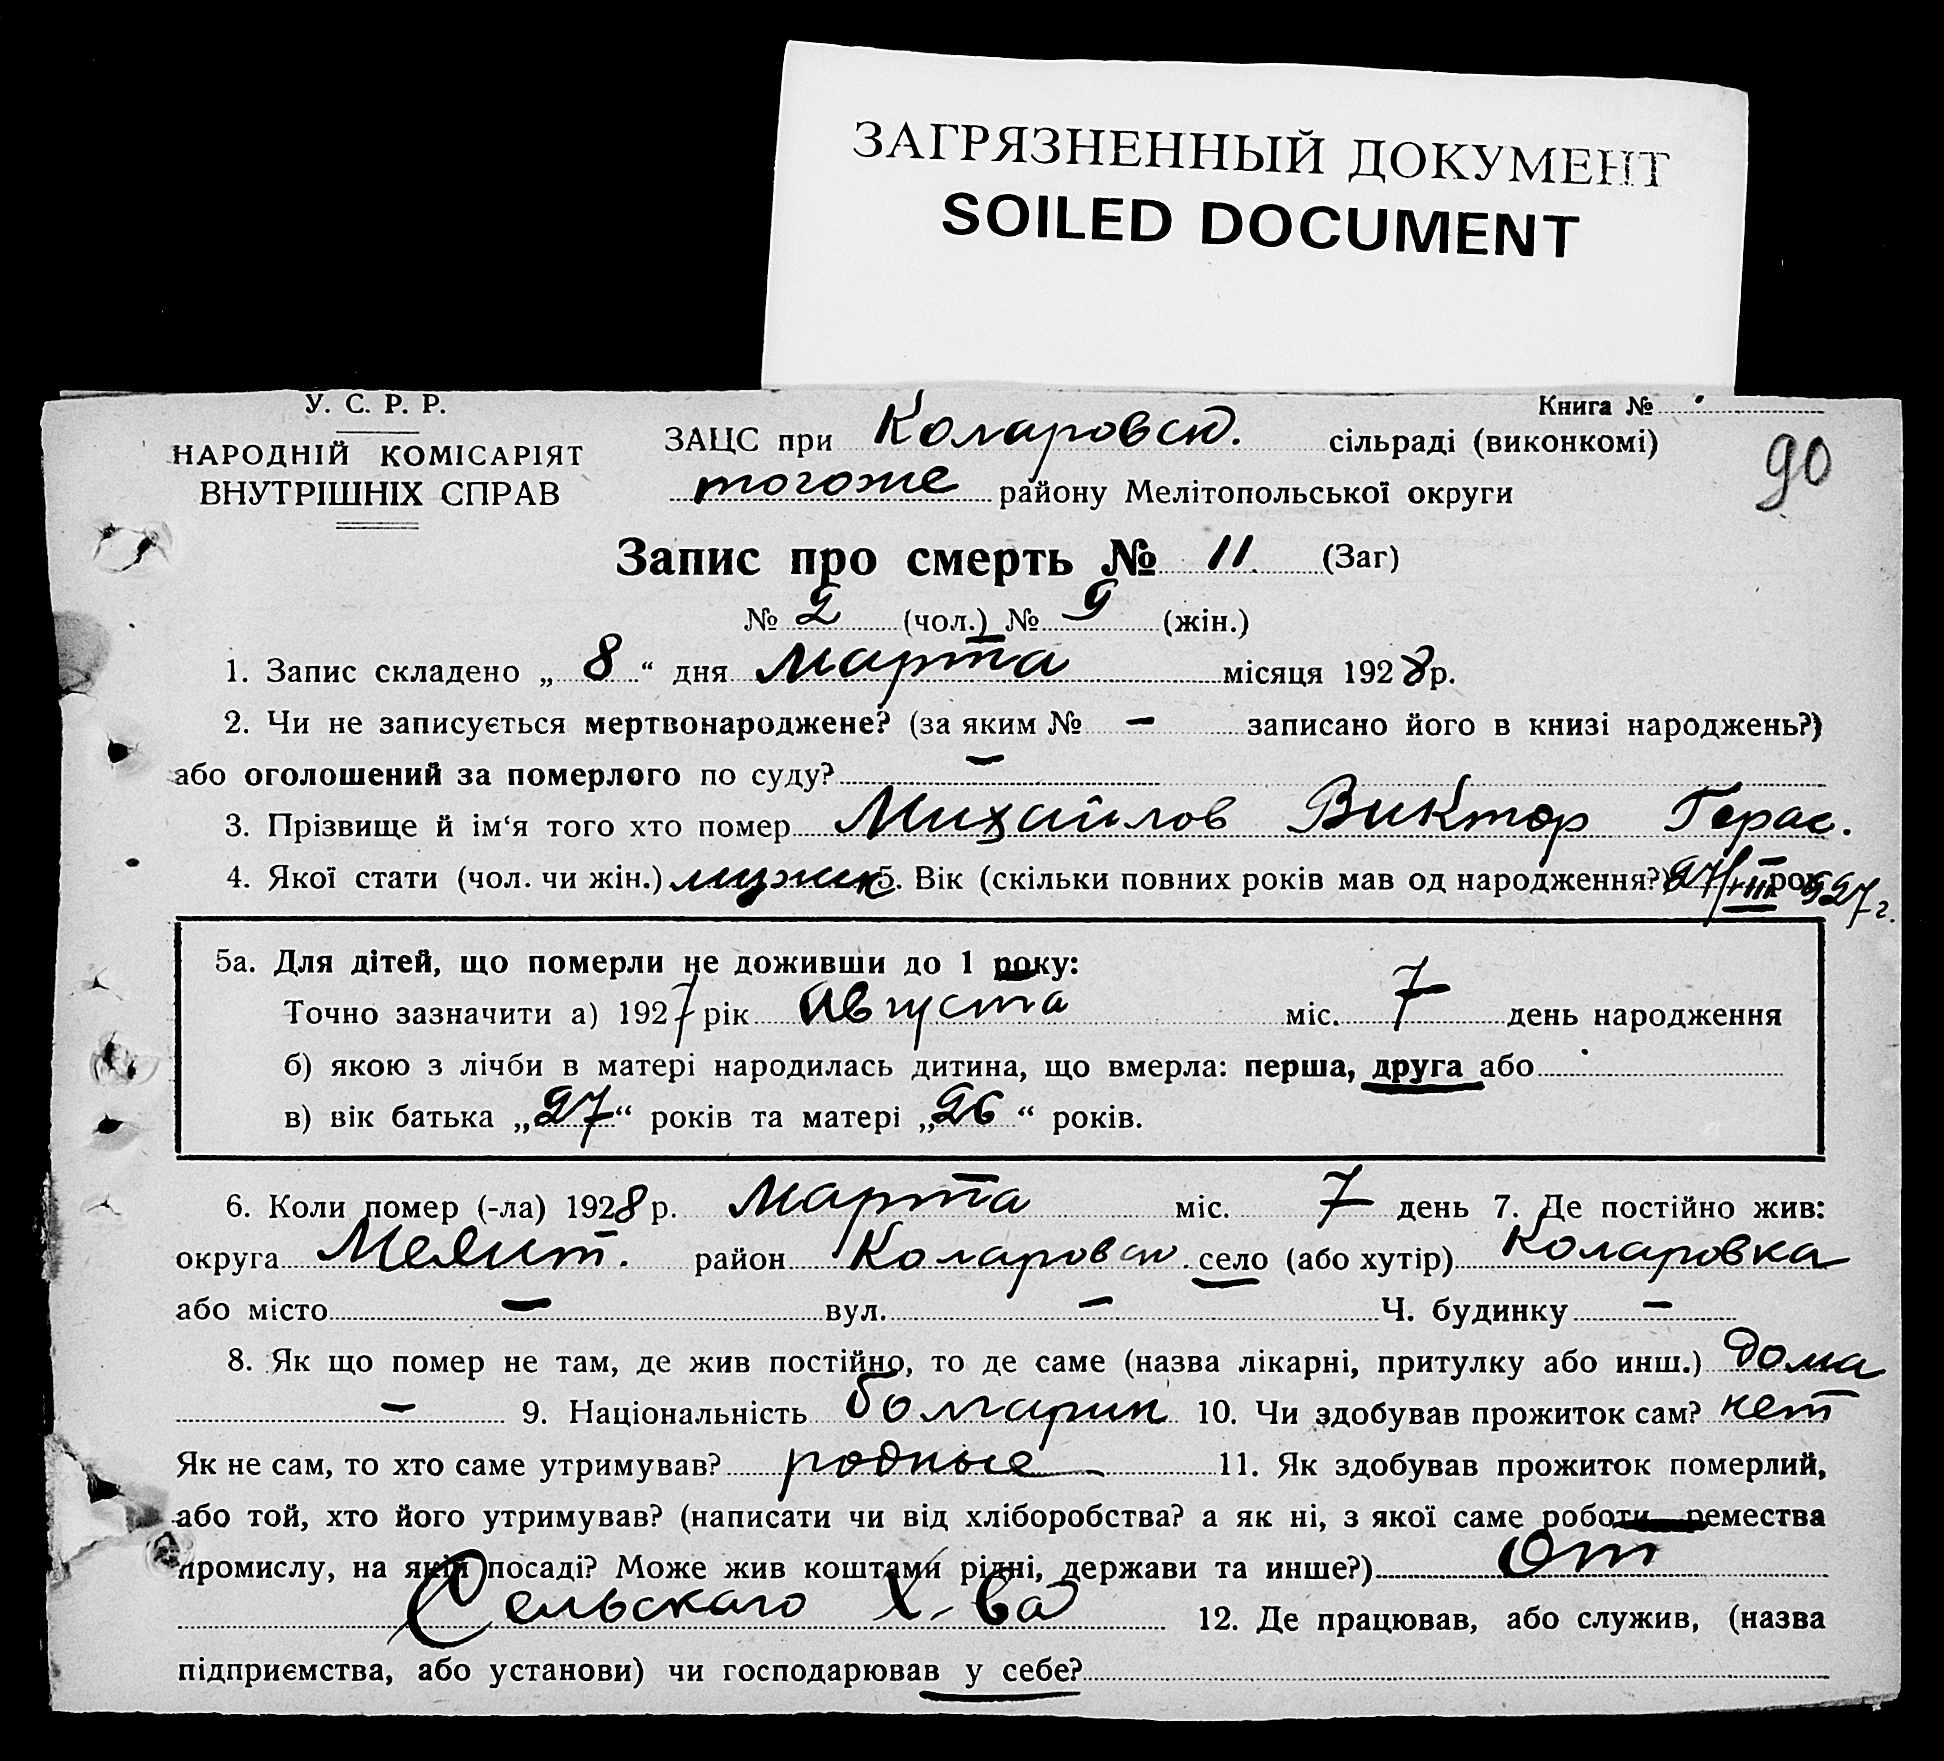 ЗАГРЯЗНЕННЫЙ ДОКУМЕНТ
SOILED DOCUMENT
У. С. Р. Р.
НАРОДНІЙ КОМІСАРІЯТ
ВНУТРІШНІХ СПРАВ
Книга №
ЗАЦС при Коларовск. сільраді (виконкомі)
90
тогоже району Мелітопольської округи
Запис про смерть № 11 (Заг)
№ 2 (чол.) № 9 (жін.)
1. Запис складено „ 8 “ дня марта місяця 1928 р.
2. Чи не записується мертвонароджене? (за яким № – записано його в книзі народжень?)
або оголошений за померлого по суду? –
3. Прізвище й ім‘я того хто помер Михайлов Виктор Герас.
4. Якої стати (чол. чи жін.) мужск 5. Вік (скільки повних років мав од народження?) рок 927 г.
5а. Для дітей, що померли не доживши до 1 року:
Точно зазначити а) 1927 рік Августа міс. 7 день народження
б) якою з лічби в матері народилась дитина, що вмерла: перша, друга або
в) вік батька „27“ років та матері „26“ років.
6. Коли помер (-ла) 1928 р. марта міс. 7 день 7. Де постійно жив:
округа Мелит. район Коларовск. село (або хутір) Коларовка
або місто – вул. – Ч. будинку –
8. Як що помер не там, де жив постійно, то де саме (назва лікарні, притулку або инш.) дома
– 9. Національність болгарин 10. Чи здобував прожиток сам? нет
Як не сам, то хто саме утримував? родные 11. Як здобував прожиток померлий,
або той, хто його утримував? (написати чи від хліборобства? а як ні, з якої саме роботи ремества
промислу, на якій посаді? Може жив коштами рідні, держави та инше?) От
Сельскаго Х-ва 12. Де працював, або служив, (назва
підприємства, або установи) чи господарював у себе?